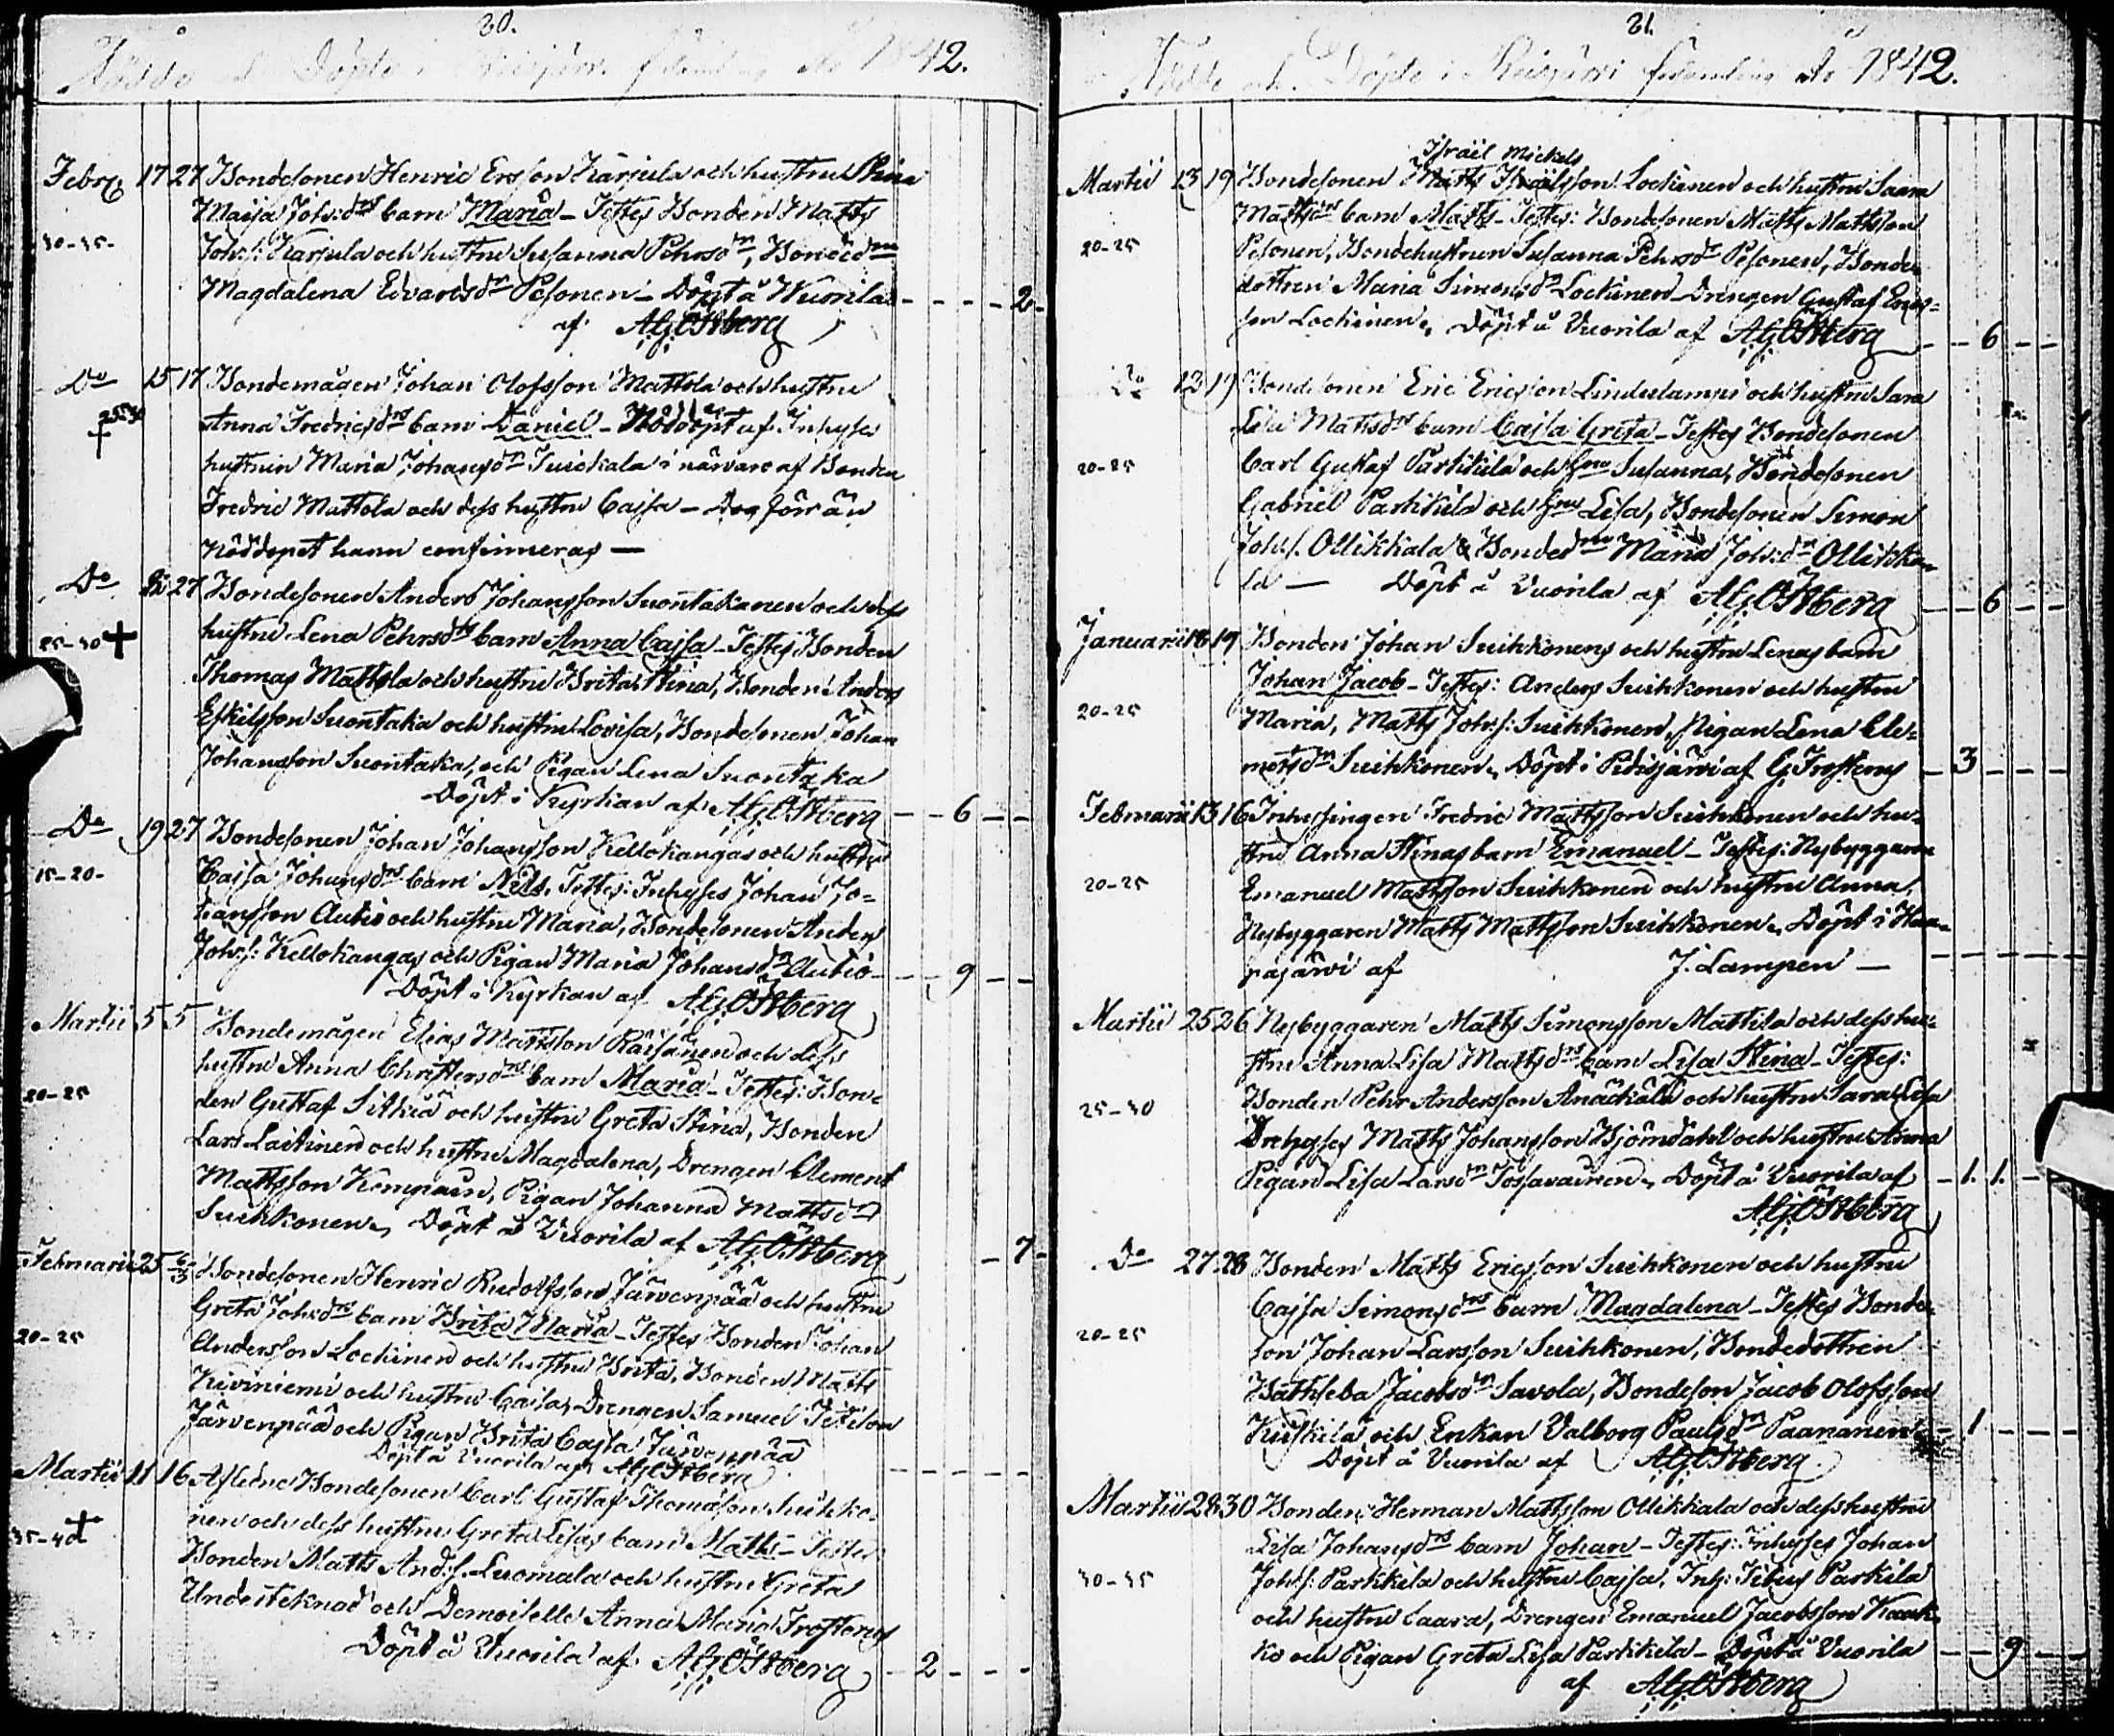 20.
Födde och Döpte i Reisjärvi församling Ao 1842.
Febr. 17 27 Bondesonen Henric Ersson Karjula och hustru Stina
Maija Joh:drs barn Maria - Testes Bonden Matts
30-35- Joh:s: Karjula och hustru Susanna Pehrsdr, Bondedn
Magdalena Edvardsdr Pesonen - Döpt å Wuorila - 2 -
af AGÖstberg
Do 15 17 Bondemågen Johan Olofsson Mattola och hustru
25-30 Anna Fredricsdrs barn Daniel - Nöddöpt af Inhyses
+ hustrun Maria Johansdr i närvaro af Bonden
Fredric Mattola och dess hustru Cajsa - Dog förr än
Nöddopet hann confirmeras -
Do 27 Bondesonen Anders Johansson Suontakanen och dess
25-30 + hustru Lena Pehrsdrs barn Anna Cajsa - Testes Bonden
Thomas Mattola och hustru Brita Stina, Bonden Anders
Eskilsson Suontaka och hustru Lovisa, Bondesonen Johan
Johansson Suontaka, och Pigan Lena Suontaka
Döpt i Kyrkan af AGÖstberg - 6 -
Do 19 27 Bondesonen Johan Johansson Kellokangas och hustru
15-20- Cajsa Johansdrs barn Nils. Testes: Inhyses Johan Jo=
hansson Autio och hustru Maria, Bondesonen Anders
Joh:s: Kellokangas och Pigan Maria Johansdr Autio - 9 -
Döpt i Kyrkan af AGÖstberg
Martii 5 5 Bondemågen Elias Mattsson Räisänen och dess
hustru Anna Christersdrs barn Maria - Testes: Bon=
20-25 den Gustaf Sitkiä och hustru Greta Stina, Bonden
Lars Laitinen och hustru Magdalena, Drengen Clement
Mattsson Kemppain, Pigan Johanna Mattsdr
Suihkonen, Döpt å Vuorila af AGÖstberg - 7 -
Februarii 25 6/3 Bondesonen Henric Rudolfsson Järvenpää och hustru
Greta Joh:drs barn Brita Maria - Testes Bonden Johan
20-25 Andersson Lockinen och hustru Brita, Bonden Matts
Kiviniemi och hustru Caisa, Drengen Samuel
Järvenpää och Pigan Brita Cajsa Järvenpää
Döpt å Vuorila af AGÖstberg
Martii 11 16 Afledne Bondesonen Carl Gustaf Thomasson Suihko=
nen och dess hustru Greta Lisas barn Matts - Testes
35-40 + Bonden Matts And:s. Luomala och hustru Greta
Undertecknad och Demoiselle Anna Maria Frosterus
Döpt å Vuorila af AGÖstberg - 2 -
21.
Födde och Döpte i Reisjärvi församling Ao 1842.
Israel Mickels
Martii 13 19 Bondesonen Matts Israelsson Lockinen och hustru Saara
Mattsdrs barn Matts - Testes: Bondesonen Matts Mattsson
20-25 Pesonen, Bondehustrun Susanna Pehrsdr Pesonen, Bonde=
dottren Maria Simonsdr Lockinen - Drengen Gustaf Erics=
son Lockinen, Döpt å Vuorila af AGÖstberg - 6 -
Do 12 19 Bondesonen Eric Ericsson Lindulampi och hustru Sara
Lisa Mattsdrs barn Cajsa Greta - Testes Bondesonen
20-25 Carl Gustaf Parkkila och hru Susanna, Bondesonen
Gabriel Parkkila och hru Lisa, Bondesonen Simon
Joh:s. Ollikkala & Bondedn Maria Joh:dr Ollikka=
la - Döpt å Vuorila af AGÖstberg - 6 -
Januarii 16 19 Bonden Johan Suihkonens och hustru Lenas barn
Johan Jacob - Testes: Anders Suihkonen och hustru
20-25 Maria, Matts Joh:s: Suihkonen, Pigan Lena Cle=
metsdr Suihkonen, Döpt i Pihisjärvi af G. Frosterus - 3 -
Februarii 13 16 Inhysingen Fredric Mattsson Suihkonen och hu=
stru Anna Stinas barn Emanuel - Testes: Nybyggaren
20-25 Emanuel Mattsson Suihkonen och hustru Anna,
Nybyggaren Matts Mattsson Suihkonen, Döpt i Haa=
pajärvi af J. Lampen -
Martii 25 26 Nybyggaren Matts Simonsson Mattila och dess hu=
stru Anna Lisa Mattsdrs barn Lisa Stina - Testes:
25-30 Bonden Pehr Andersson Änäckälä och hustru Sara Lisa
Matts Johansson Björndahl och hustru Anna
Pigan Lisa Larsdr Tossavainen, Döpt å Vuorila af - 1. 1. -
AGÖstberg
Do 27 28 Bonden Matts Ericsson Suihkonen och hustru
Cajsa Simonsdrs barn Magdalena - Testes Bonde=
20-25 son Johan Larsson Suihkonen, Bondedottren
Bathseba Jacobsdr Savola, Bondeson Jacob Olofsson
Kuskila och Enkan Valborg Paulsdr Paananen - 1 -
Döpt å Vuorila af AGÖstberg
Martii 28 30 Bonden Herman Mattsson Ollikkala och dess hustru
Lisa Johansdrs barn Johan - Testes: Inhyses Johan
30-35 Joh:s: Parkkila och hustru Cajsa, Inh: Titus Parkila
och hustru Saara, Drengen Emanuel Jacobsson Kauk=
ko och Pigan Greta Lisa Parkkila - Döpt å Vuorila - 9 -
af AGÖstberg